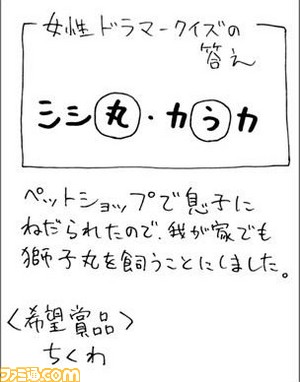 女性ドラマークイズの
答え
シシ丸・カうカ
ペットショップで息子に
ねだられたので、我が家でも
獅子丸を飼うことにしました。
〈希望賞品〉
ちくわ
ファミ通.com